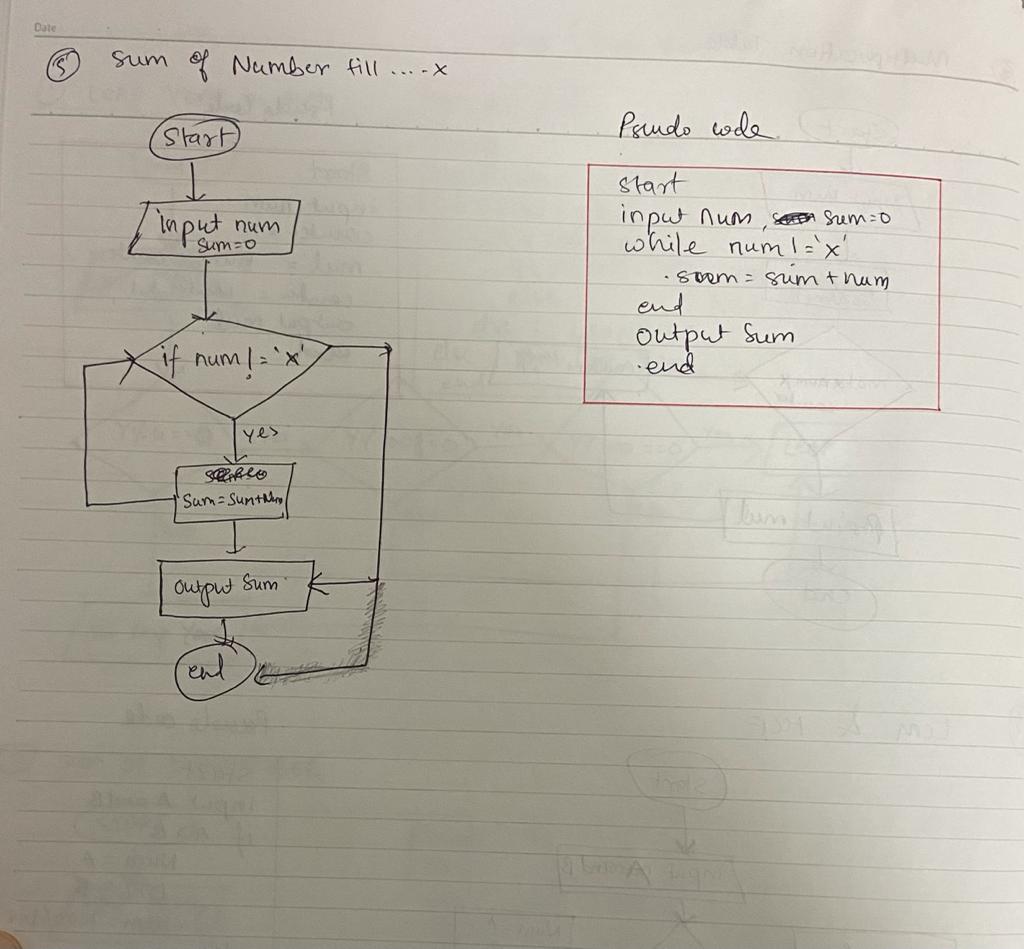 Date
5 Sum of Number fill ....x
Start
input num
sum=0
if num != 'x'
yes
Sum = Sum+Num
output Sum
end
Psudo code
start
input num, sum=0
while num != 'x'
. soom = sum + num
end
output Sum
. end